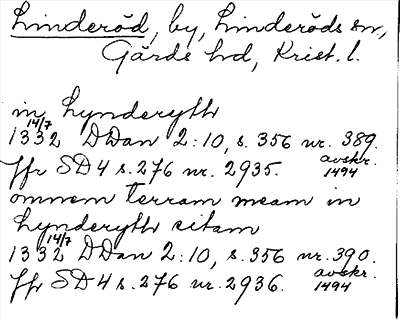 Linderöd, by, Linderöds sn,
Gärds hd, Krist. l.
in Lynderyth
14/7
1332 DDan 2:10, s. 356 nr. 389.
jfr SD 4 s. 276 nr. 2935. avskr. 1494
omnem terram meam in
Lynderyth sitam
14/7
1332 DDan 2:10, s. 356 nr. 390.
jfr SD 4 s. 276 nr. 2936. avskr. 1494